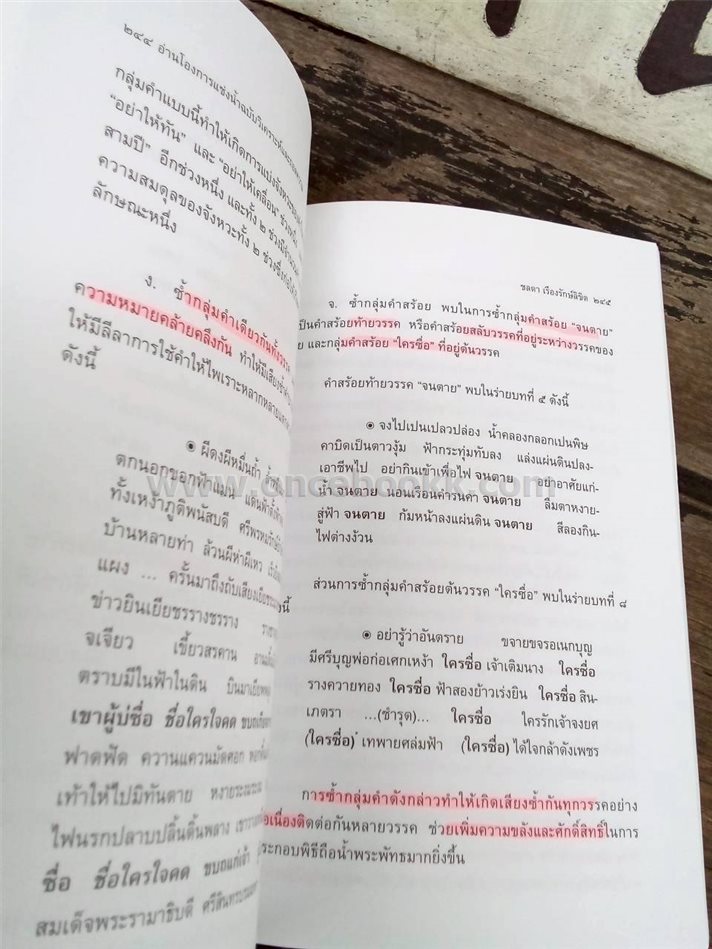 ๒๔๔ อ่านโองการแช่งน้ำฉบับวิเคราะห์และ
กลุ่มคำแบบนี้ทำให้เกิดการแบ่งจังหวะ
"อย่าให้ทัน" และ "อย่าให้เคลื่อน" ช่วงหนึ่ง
สามปี" อีกช่วงหนึ่ง และทั้ง ๒ ช่วงมี
ความสมดุลของจังหวะทั้ง ๒ ช่วง
ลักษณะหนึ่ง
ง. ซ้ำกลุ่มคำเดียวกันทั้งวรรค
ความหมายคล้ายคลึงกัน ทำให้มีเสียงซ้ำ
ให้มีลีลาการใช้คำให้ไพเราะหลากหลาย
ดังนี้
๏ ผีดงผีหมื่นถ้ำ ล้ำ
ตกนอกขอกฟ้าแมน แดนฟ้าตั้ง
ทั้งเหง้าภูติพนัสบดี ศรีพรหมรักษ์
บ้านหลายท่า ล้วนผีห่าผีเหว
แผง ... ครั้นมาถึงถับเสียงเยีย
ข่าวยินเยียชรรางชรราง
จเจียว เขี้ยวสรคาน
ตราบมีในฟ้าในดิน บินมา
เขาผู้บ่ซื่อ ชื่อใครใจคด ขบถ
ฟาดฟัด ควานแควนมัดศอก
เท้าให้ไปมิทันตาย หงาย
ไฟนรกปลาบปลิ้นดิ้นพลาง เขา
ซื่อ ชื่อใครใจคด ขบถแก่เจ้า
สมเด็จพระรามาธิบดี ศรีสินทร
ชลดา เรืองรักษ์ลิขิต ๒๔๕
จ. ซ้ำกลุ่มคำสร้อย พบในการซ้ำกลุ่มคำสร้อย "จนตาย"
เป็นคำสร้อยท้ายวรรค หรือคำสร้อยสลับวรรคที่อยู่ระหว่างวรรคของ
และกลุ่มคำสร้อย "ใครซื่อ" ที่อยู่ต้นวรรค
คำสร้อยท้ายวรรค "จนตาย" พบในร่ายบทที่ ๕ ดังนี้
๏ จงไปเปนเปลวปล่อง น้ำคลองกลอกเปนพิษ
คาบิดเป็นตาวงุ้ม ฟ้ากระทุ่มทับลง แล่งแผ่นดินปลง-
เอาชีพไป อย่ากินเข้าเพื่อไฟ จนตาย อย่าอาศัยแก่-
น้ำ จนตาย นอนเรือนคำรนคา จนตาย ลืมตาหงาย-
สู่ฟ้า จนตาย ก้มหน้าลงแผ่นดิน จนตาย สีลองกิน-
ไฟต่างง้วน
ส่วนการซ้ำกลุ่มคำสร้อยต้นวรรค "ใครซื่อ" พบในร่ายบทที่ ๘
๏ อย่ารู้ว่าอันตราย ขจายขจรอเนกบุญ
มีศรีบุญพ่อก่อเศกเหง้า ใครซื่อ เจ้าเติมนาง ใครซื่อ
รางควายทอง ใครซื่อ ฟ้าสองย้าวเร่งยิน ใครซื่อ สิน-
เภตรา ...(ชำรุด)... ใครซื่อ ใครรักเจ้าจงยศ
(ใครซื่อ)* เทพายศล่มฟ้า (ใครซื่อ) ได้ใจกล้าดังเพชร
การซ้ำกลุ่มคำดังกล่าวทำให้เกิดเสียงซ้ำกันทุกวรรคอย่าง
อเนื่องติดต่อกันหลายวรรค ช่วยเพิ่มความขลังและศักดิ์สิทธิ์ในการ
ระกอบพิธีถือน้ำพระพัทธมากยิ่งขึ้น
www.oncebookk.com